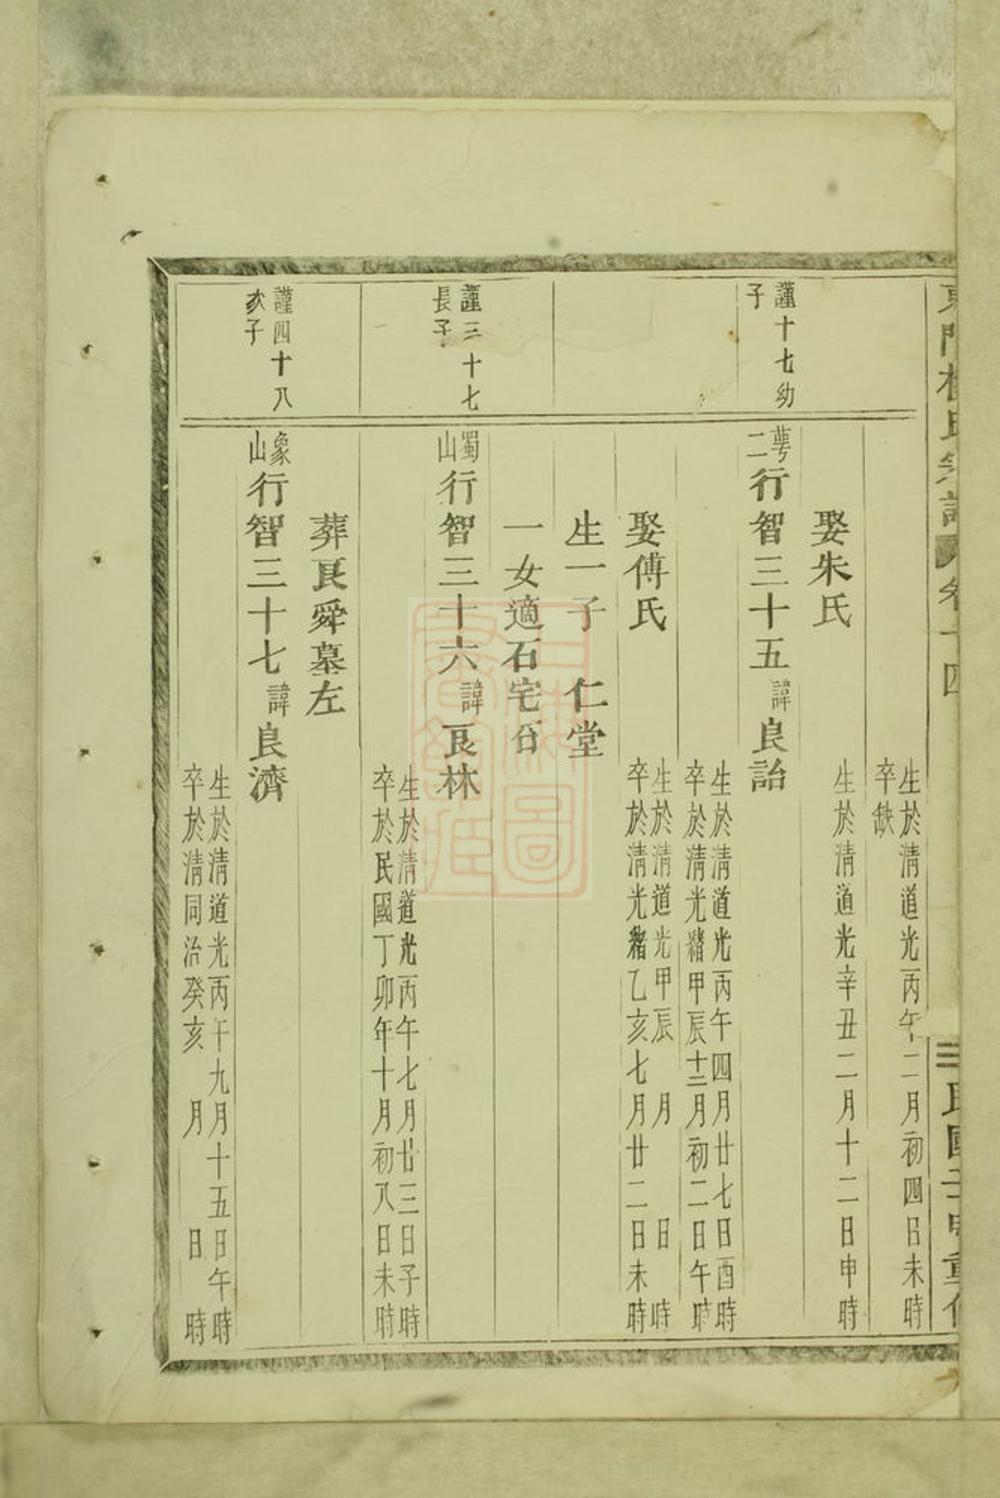 生於清道光丙午二月初四日未時
卒缺
娶朱氏
生於清道光辛丑二月十二日申時
謹十七幼
子
二行智三十五諱良詒
生於清道光丙午四月廿七日酉時
卒於清光緒甲辰十二月初二日午時
娶傅氏
生於清道光甲辰 月 日 時
卒於清光緒乙亥七月廿二日未時
生一子 仁堂
一女適石宅
謹三十七
長子
蜀山行智三十六諱良林
生於清道光丙午七月廿三日子時
卒於民國丁卯年十月初八日未時
葬良舜墓左
謹四十八
次子
象山行智三十七諱良濟
生於清道光丙午九月十五日午時
卒於清同治癸亥 月 日 時